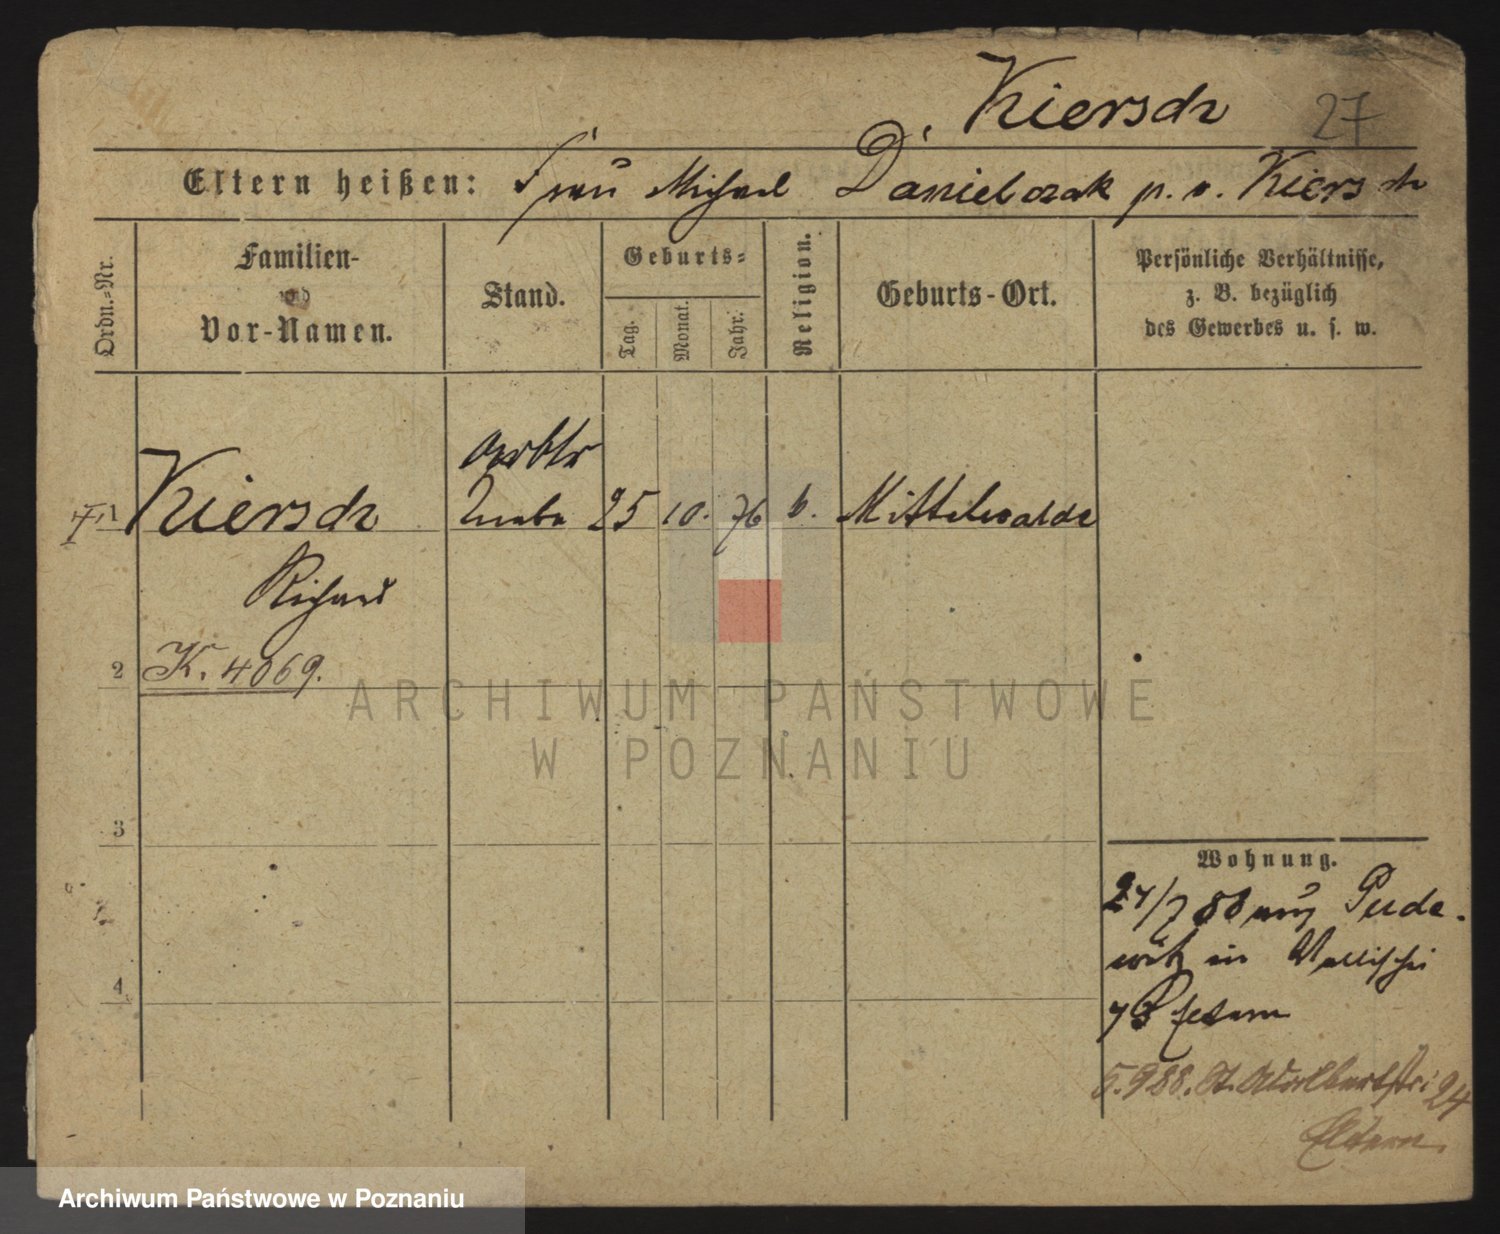 Kiersch 27
Eltern heißen: Frau Michael Danielczak p. v. Kiersch
Ordn.-Nr.
Familien-
und
Vor-Namen.
Stand.
Geburts-
Tag.
Monat.
Jahr.
Religion.
Geburts-Ort.
Persönliche Verhältnisse,
z. B. bezüglich
des Gewerbes u. s. w.
1 Kiersch 25 10. 76 Mittelwalde
Richard
2 K. 4069.
3
4
Wohnung.
24/7 88 aus Pude-
witz in Wallischei
73 Eltern
5.9 88. St. Adalbertstr 24
Eltern.
ARCHIWUM PAŃSTWOWE
W POZNANIU
Archiwum Państwowe w Poznaniu